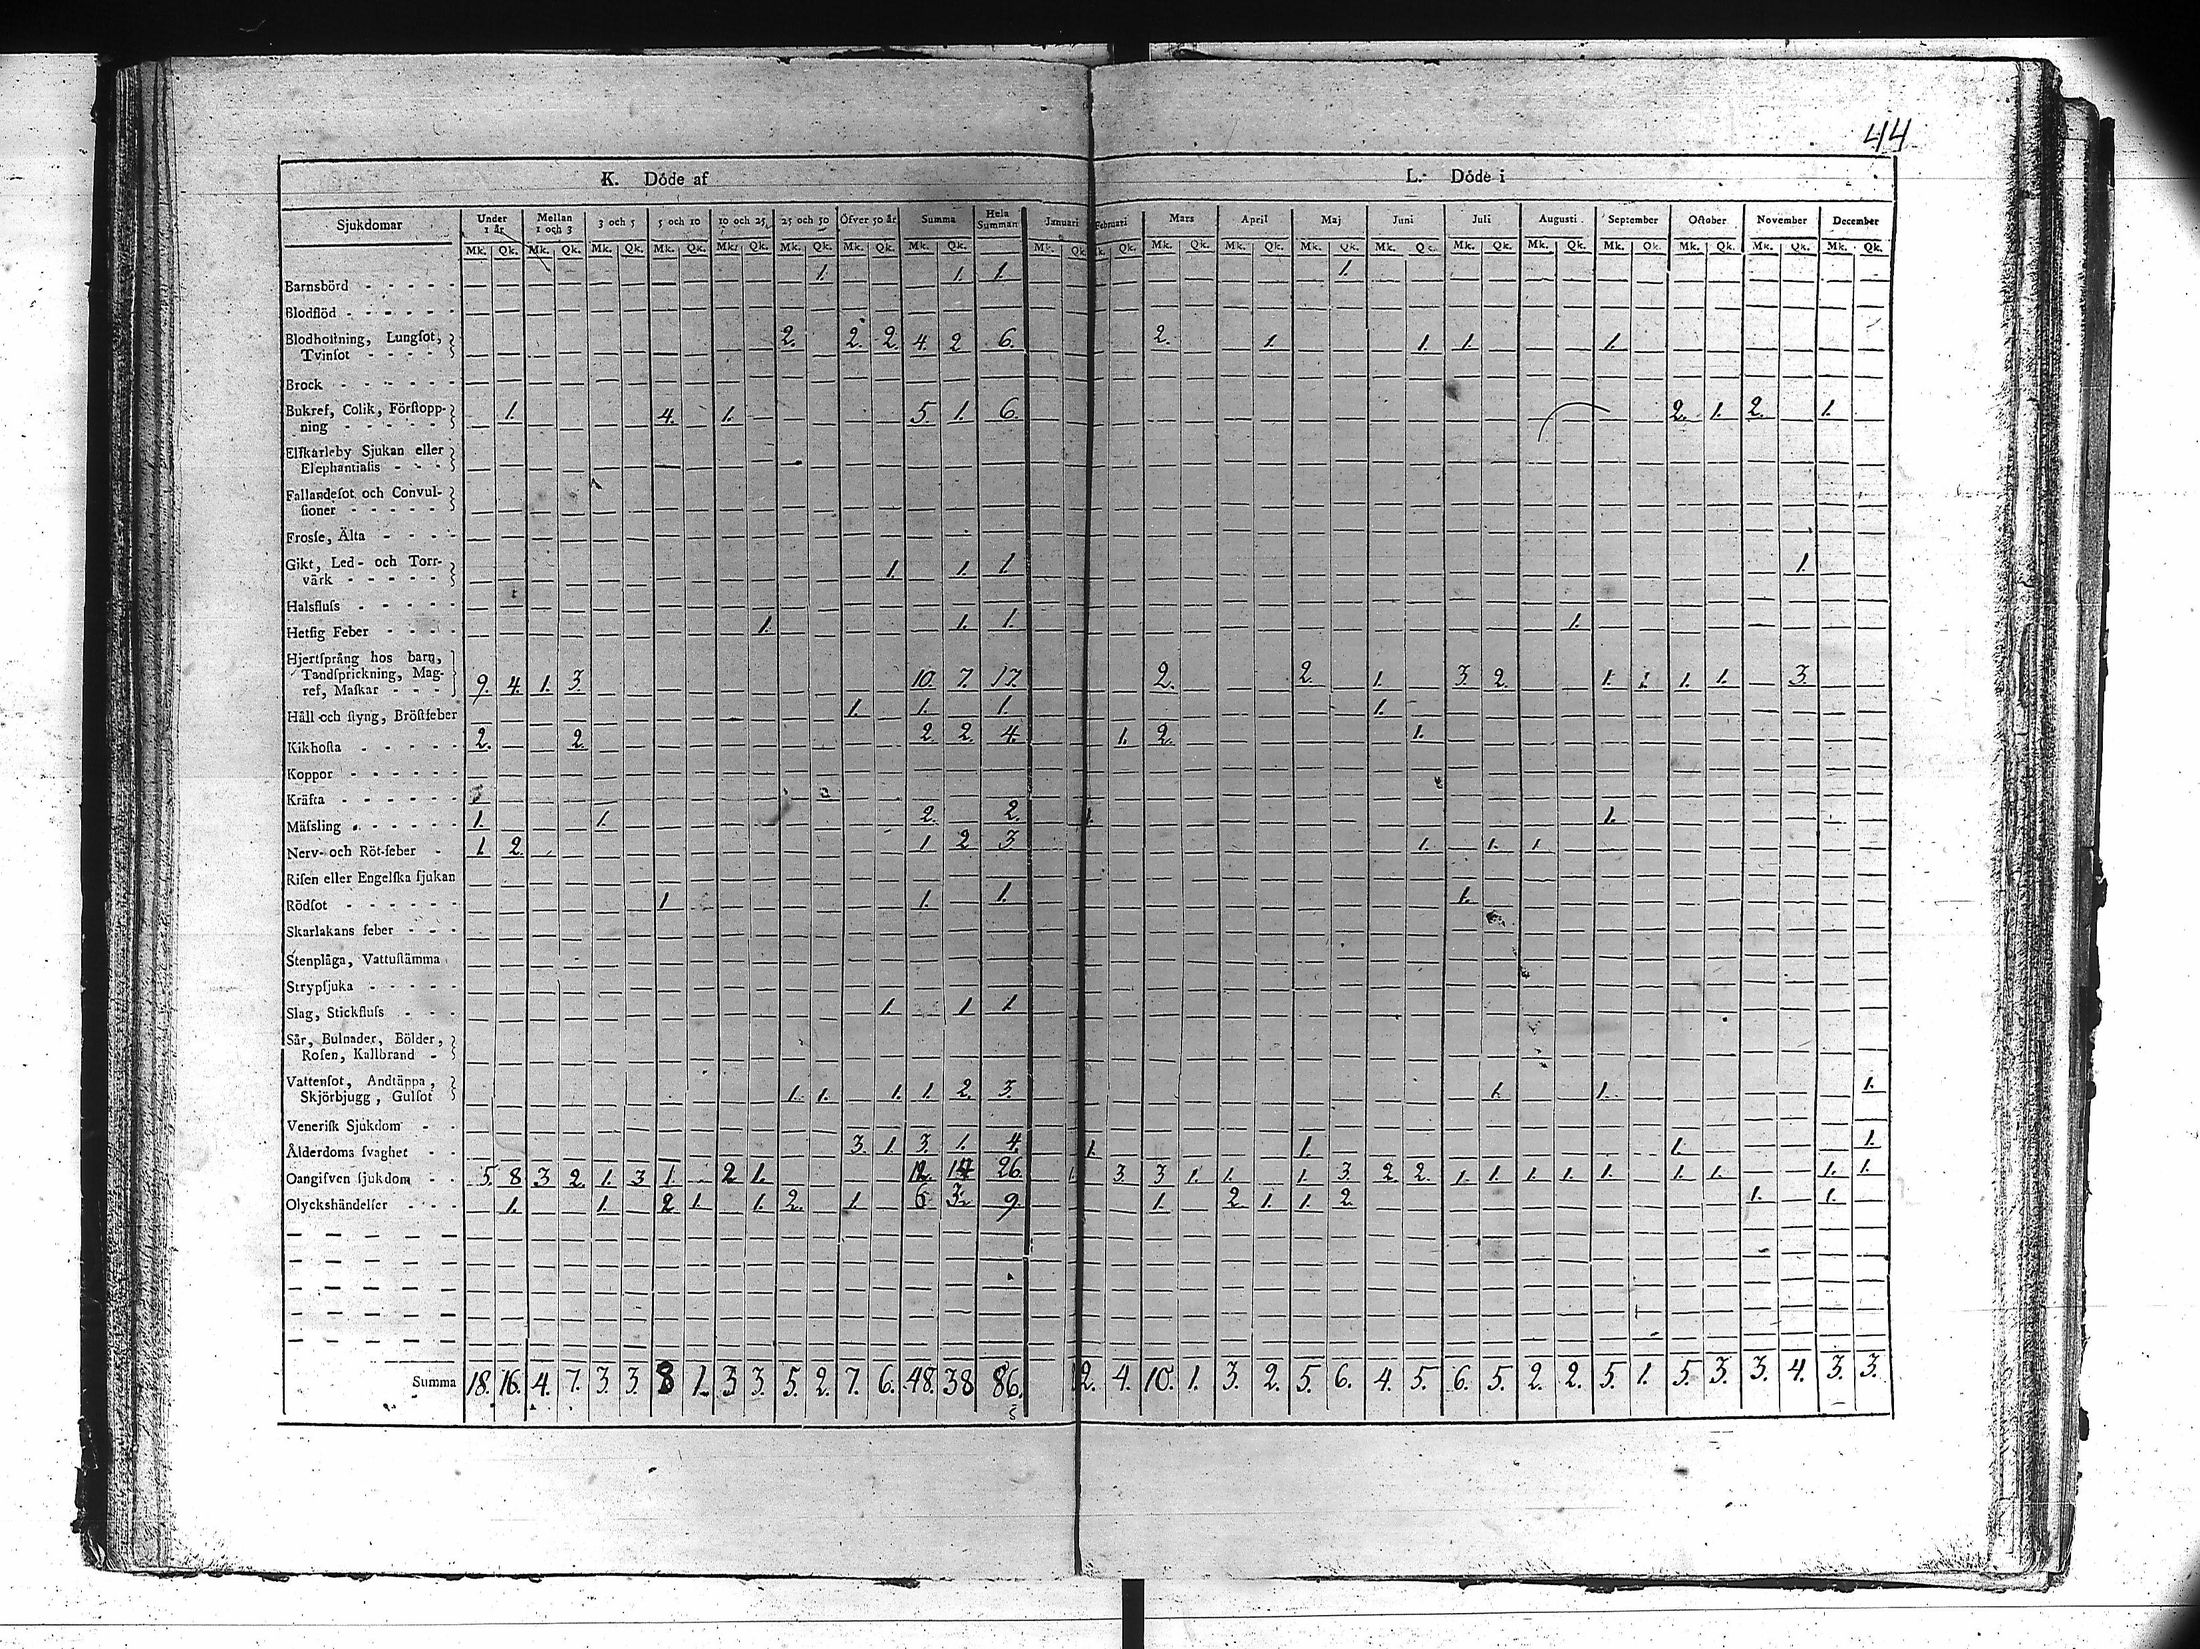 44
K. Döde af
L. Döde i
Sjukdomar Under 1 år Mellan 1 och 3 3 och 5 5 och 10 10 och 25 25 och 50 Öfver 50 år Summa Hela Summan Januari Februari Mars April Maj Juni Juli Augusti September October November December
Mk. Qk. Mk. Qk. Mk. Qk. Mk. Qk. Mk. Qk. Mk. Qk. Mk. Qk. Mk. Qk. Mk. Qk. Mk. Qk. Mk. Qk. Mk. Qk. Mk. Qk. Mk. Qk. Mk. Qk. Mk. Qk. Mk. Qk. Mk. Qk. Mk. Qk. Mk. Qk.
Barnsbörd - - - - - 1. 1. 1. 1.
Blodflöd - - - - - -
Blodhostning, Lungſot,
Tvinſot - - - - 2. 2. 2. 4. 2 6. 2. 1. 1. 1. 1.
Brock - - - - - -
Bukref, Colik, Förſtopp-
ning - - - - - 1. 4. 1. 5. 1. 6. 2. 1. 2. 1.
Elfkarleby Sjukan eller
Elephantiaſis - - -
Fallandeſot och Convul-
ſioner - - - - -
Frosſe, Älta - - - -
Gikt, Led- och Torr-
värk - - - - - 1. 1. 1. 1.
Halsfluſs - - - - -
Hetſig Feber - - - - 1. 1. 1. 1.
Hjertſprång hos barn,
Tandſprickning, Mag-
ref, Maſkar - - - 9. 4. 1. 3. 10. 7. 17 2. 2. 1. 3. 2. 1. 1. 1. 1. 3.
Håll och ſtyng, Bröſtfeber 1. 1. 1. 1.
Kikhoſta - - - - - 2. 2. 2. 2. 4. 1. 2. 1.
Koppor - - - - - -
Kräfta - - - - - -
Mäſsling - - - - - 1. 1. 2. 2. 1. 1.
Nerv- och Röt-feber - 1. 2. 1. 2 3 1. 1. 1.
Riſen eller Engelſka ſjukan
Rödſot - - - - - - 1 1. 1. 1.
Skarlakans feber - - -
Stenplåga, Vattuſtämma
Strypſjuka - - - - -
Slag, Stickfluſs - - - 1. 1 1.
Sår, Bulnader, Bölder,
Roſen, Kallbrand -
Vattenſot, Andtäppa,
Skjörbjugg, Gulſot 1. 1. 1. 1. 2. 3. 1. 1. 1.
Veneriſk Sjukdom - -
Ålderdoms ſvaghet - - 3. 1. 3. 1. 4. 1. 1. 1. 1.
Oangifven ſjukdom - - 5. 8 3 2. 1. 3 1. 2 1. 12. 14 26. 1. 3. 3 1. 1. 1. 3. 2 2. 1. 1. 1. 1. 1. 1. 1. 1. 1.
Olyckshändelſer - - - 1. 1. 2 1. 1. 2. 1. 6 3. 9. 1. 2. 1. 1. 2. 1. 1.
Summa 18. 16. 4. 7. 3. 3. 8 1. 3 3. 5. 2. 7. 6. 48. 38 86. 2. 4. 10. 1. 3. 2. 5. 6. 4. 5. 6. 5. 2. 2. 5. 1. 5. 3. 3. 4. 3. 3.